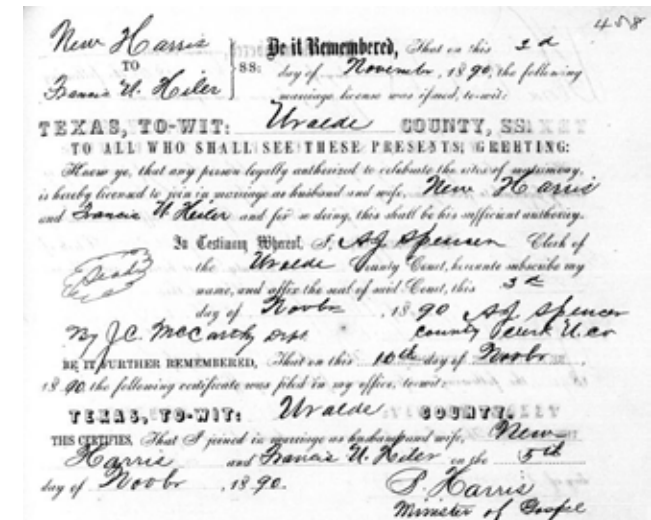 458
New Harris
TO
Francis U. Heiler
SS:
Be it Remembered, That on this 3d
day of November, 1890, the following
marriage license was issued, to-wit:
TEXAS, TO-WIT: Uvalde COUNTY, SS:
TO ALL WHO SHALL SEE THESE PRESENTS, GREETING:
Know ye, that any person legally authorized to celebrate the rites of matrimony,
is hereby licensed to join in marriage as husband and wife, New Harris
and Francis U. Heiler and for so doing, this shall be his sufficient authority.
In Testimony Whereof, I, A J Spencer Clerk of
Seal
the Uvalde County Court, hereunto subscribe my
name, and affix the seal of said Court, this 3d
day of Novbr 1890 A J Spencer
By J.C. McCarthy Dept. County Clerk U. co
BE IT FURTHER REMEMBERED, That on this 10th day of Novbr
1890 the following certificate was filed in my office, to-wit:
TEXAS, TO-WIT: Uvalde COUNTY.
THIS CERTIFIES, That I joined in marriage as husband and wife, New
Harris and Francis U. Heiler on the 5th
day of Novbr, 1890.
P. Harris
Minister of Gospel